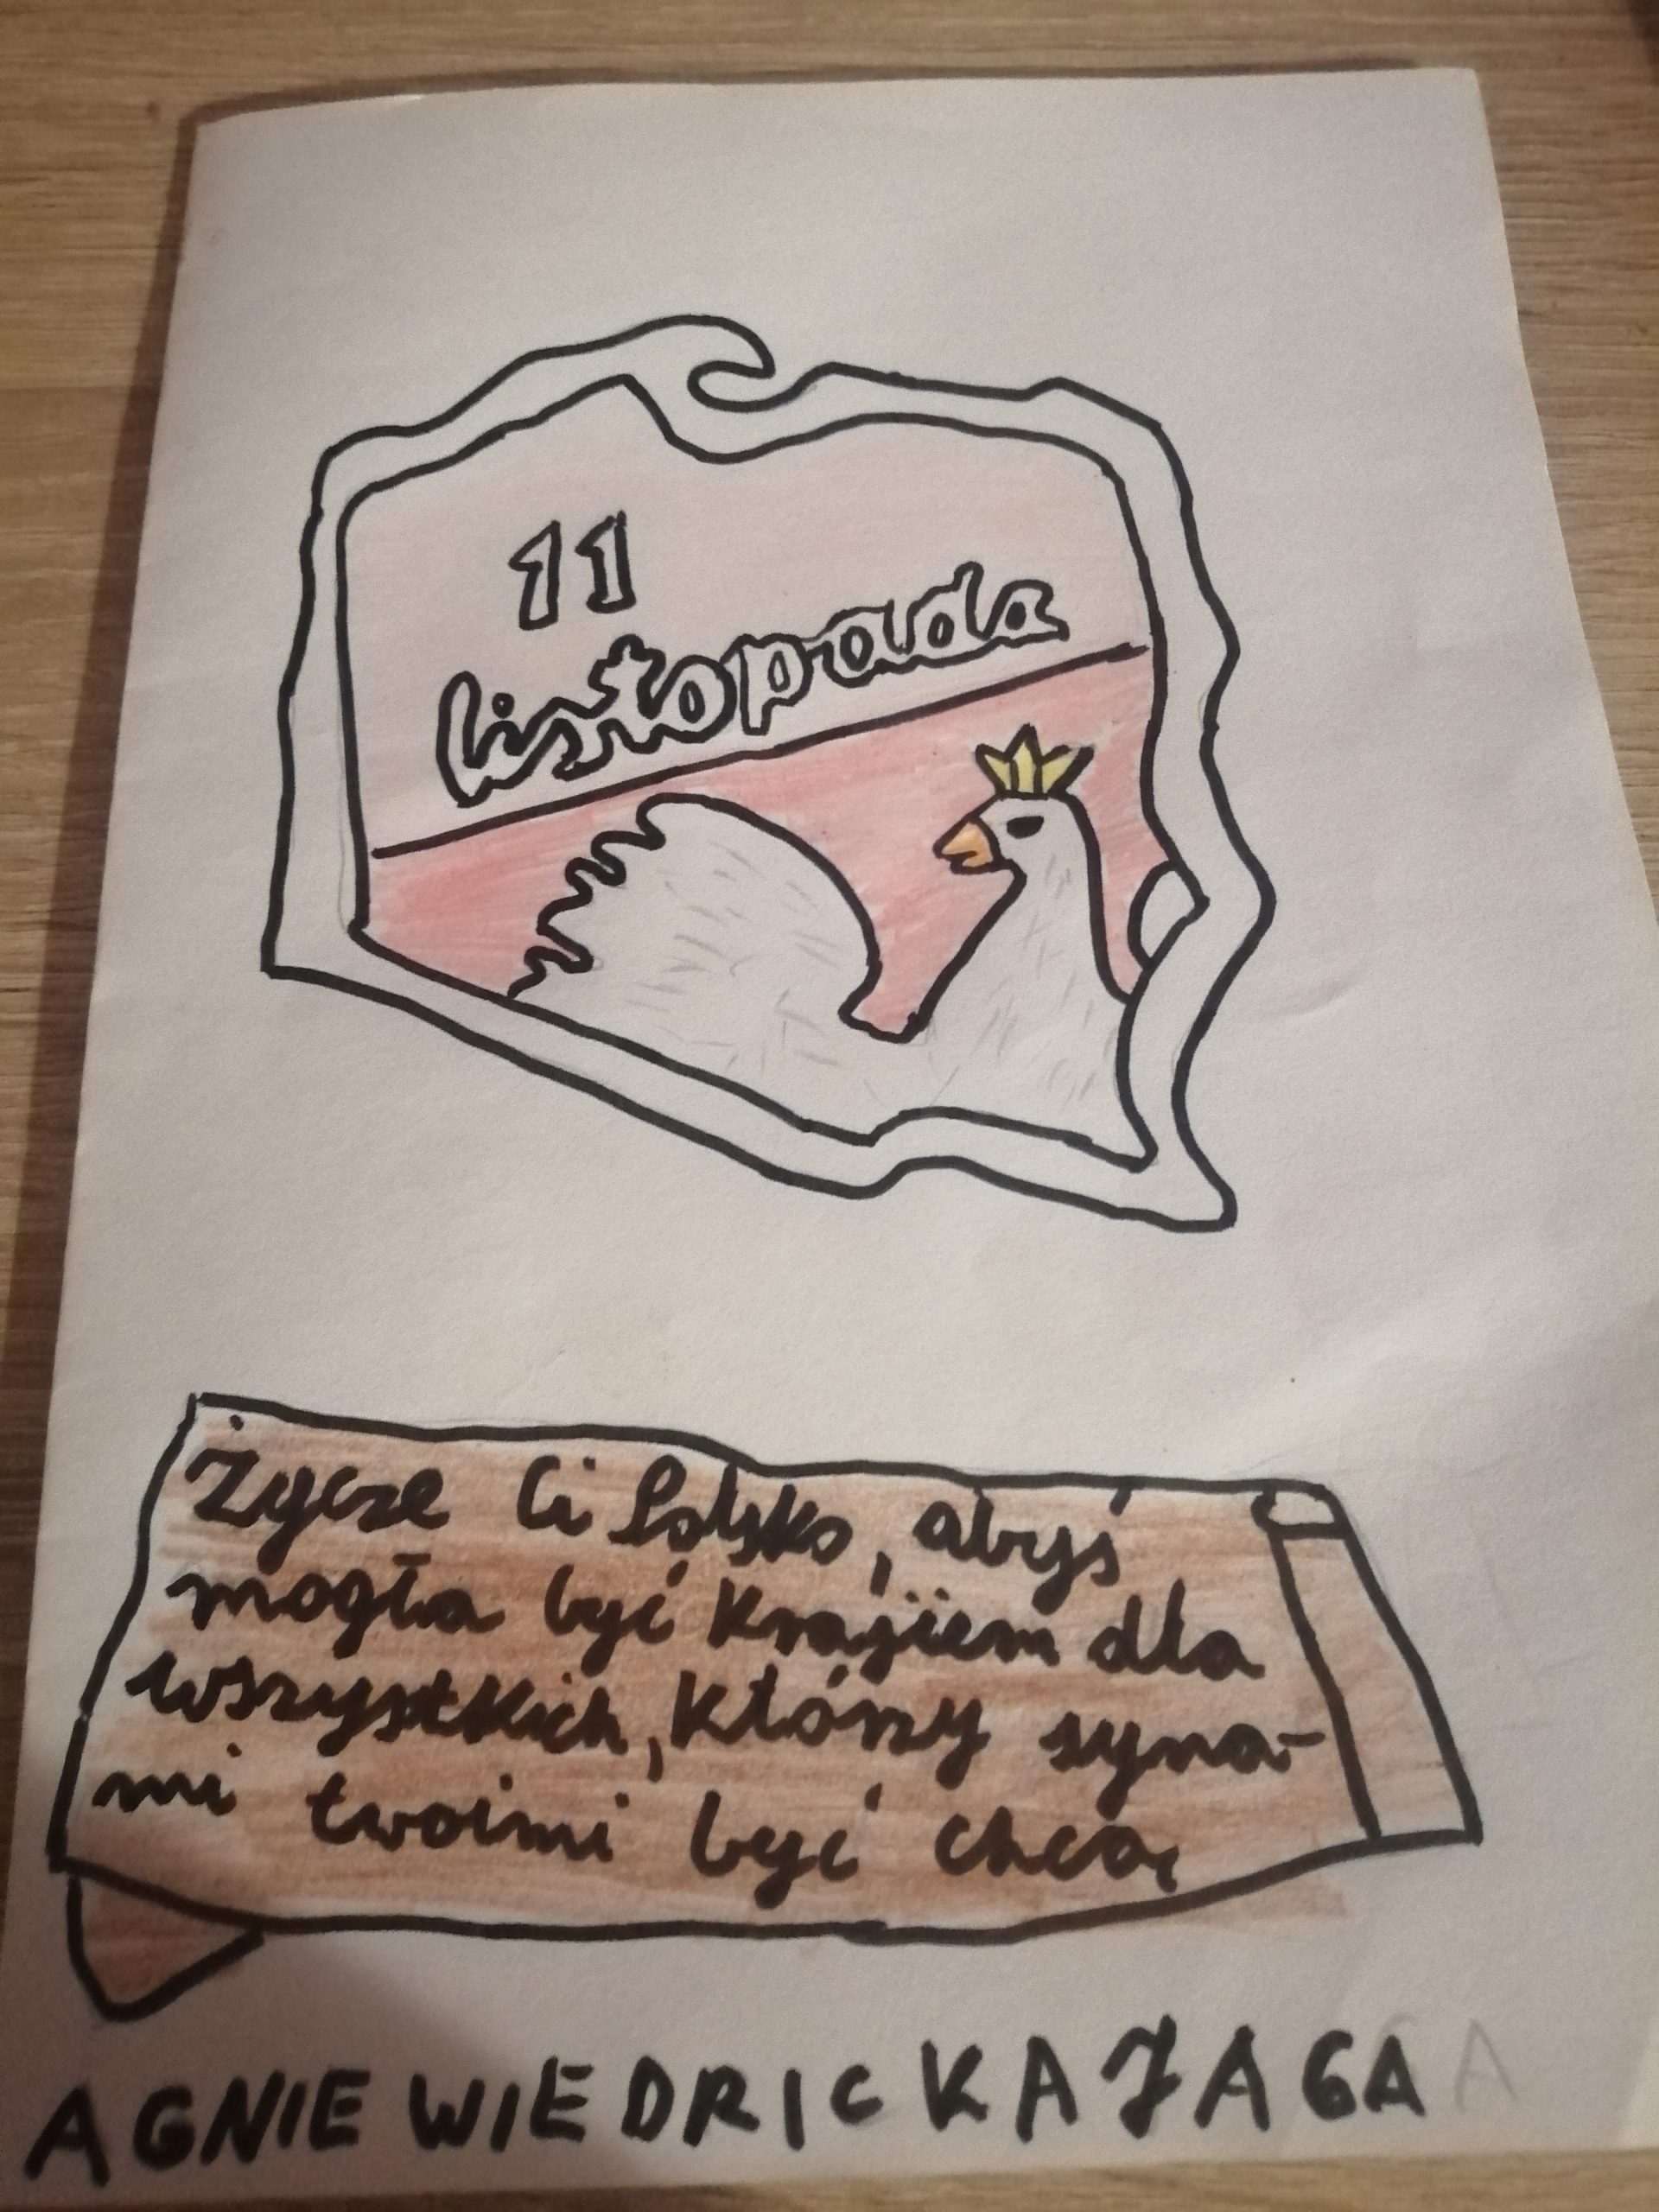 11
listopada
Życzę Ci Polsko, abyś
mogła być krajem dla
wszystkich, którzy syna-
mi twoimi być chcą
AGNIEWIEDRICKAJAGA A